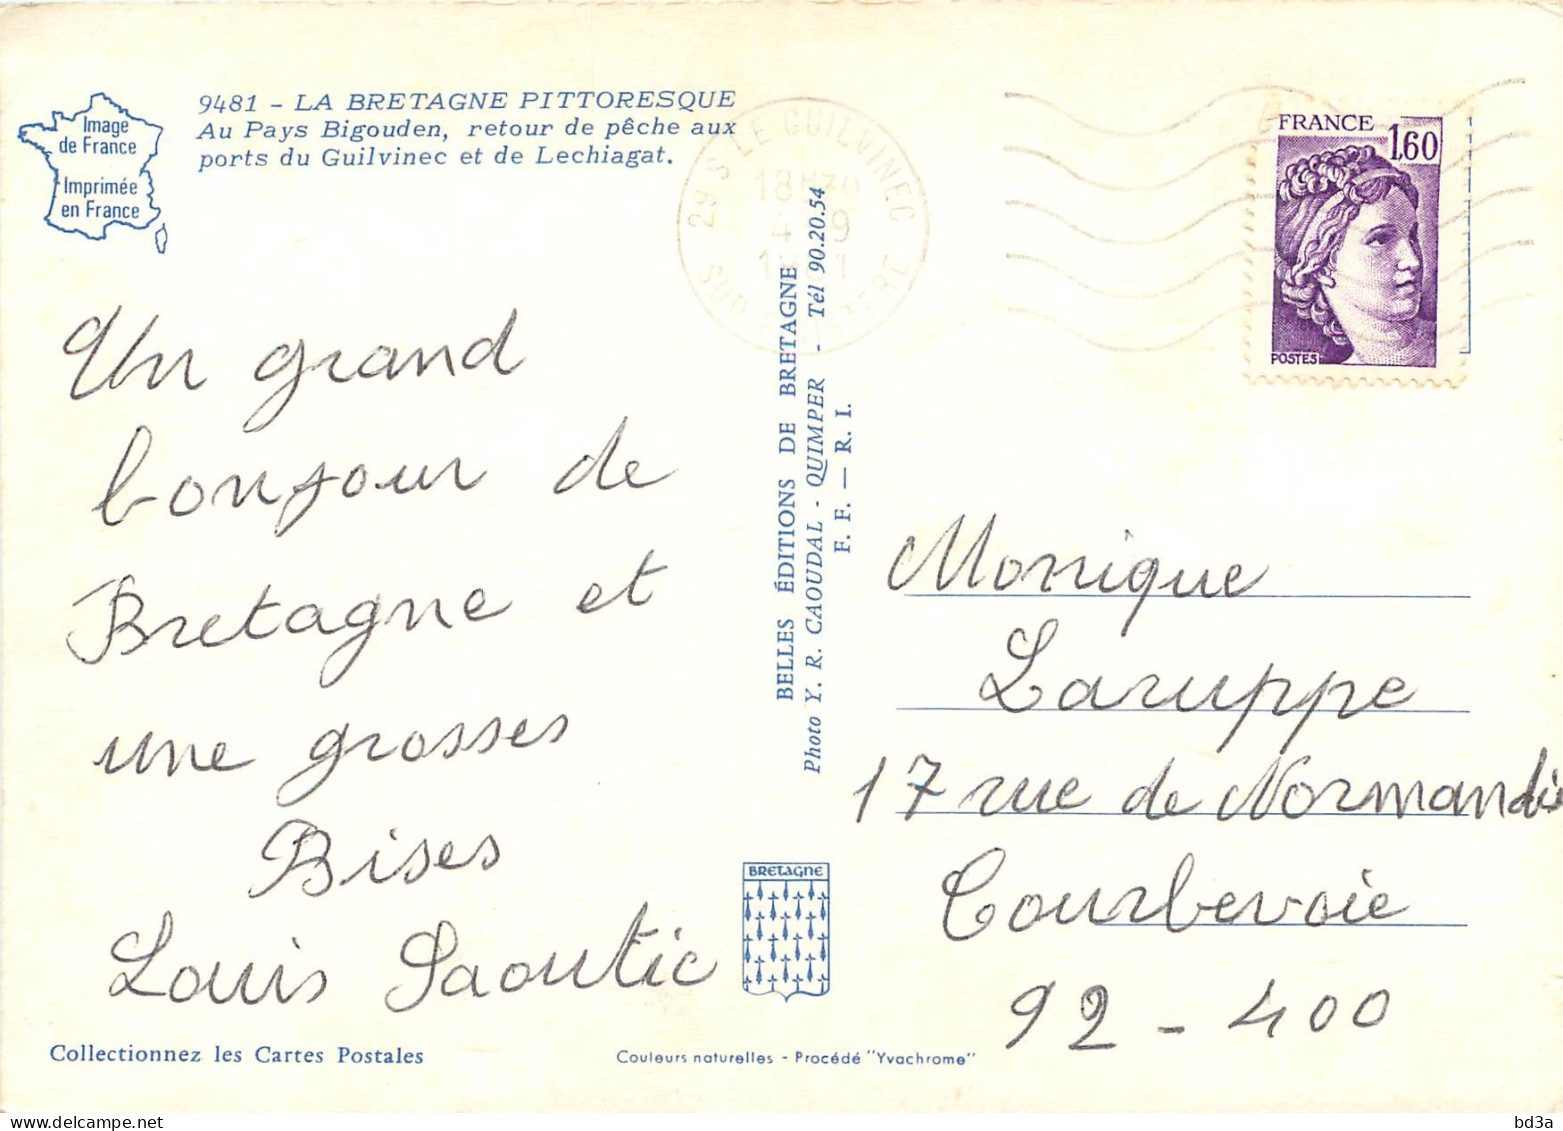 Image
de France
Imprimée
en France
9481 - LA BRETAGNE PITTORESQUE
Au Pays Bigouden, retour de pêche aux
ports du Guilvinec et de Lechiagat.
29 S LE GUILVINEC
18H30
4-9
SUD
FRANCE
1,60
POSTES
Un grand
bonjour de
Bretagne et
une grosses
Bises
Louis Saoutic
BELLES ÉDITIONS DE BRETAGNE
Photo Y. R. CAOUDAL - QUIMPER - Tél 90.20.54
F. F. — R. I.
Monique
Laruppe
17 rue de Normandie
Courbevoie
92-400
BRETAGNE
Collectionnez les Cartes Postales
Couleurs naturelles - Procédé "Yvachrome"
www.delcampe.net
bd3a